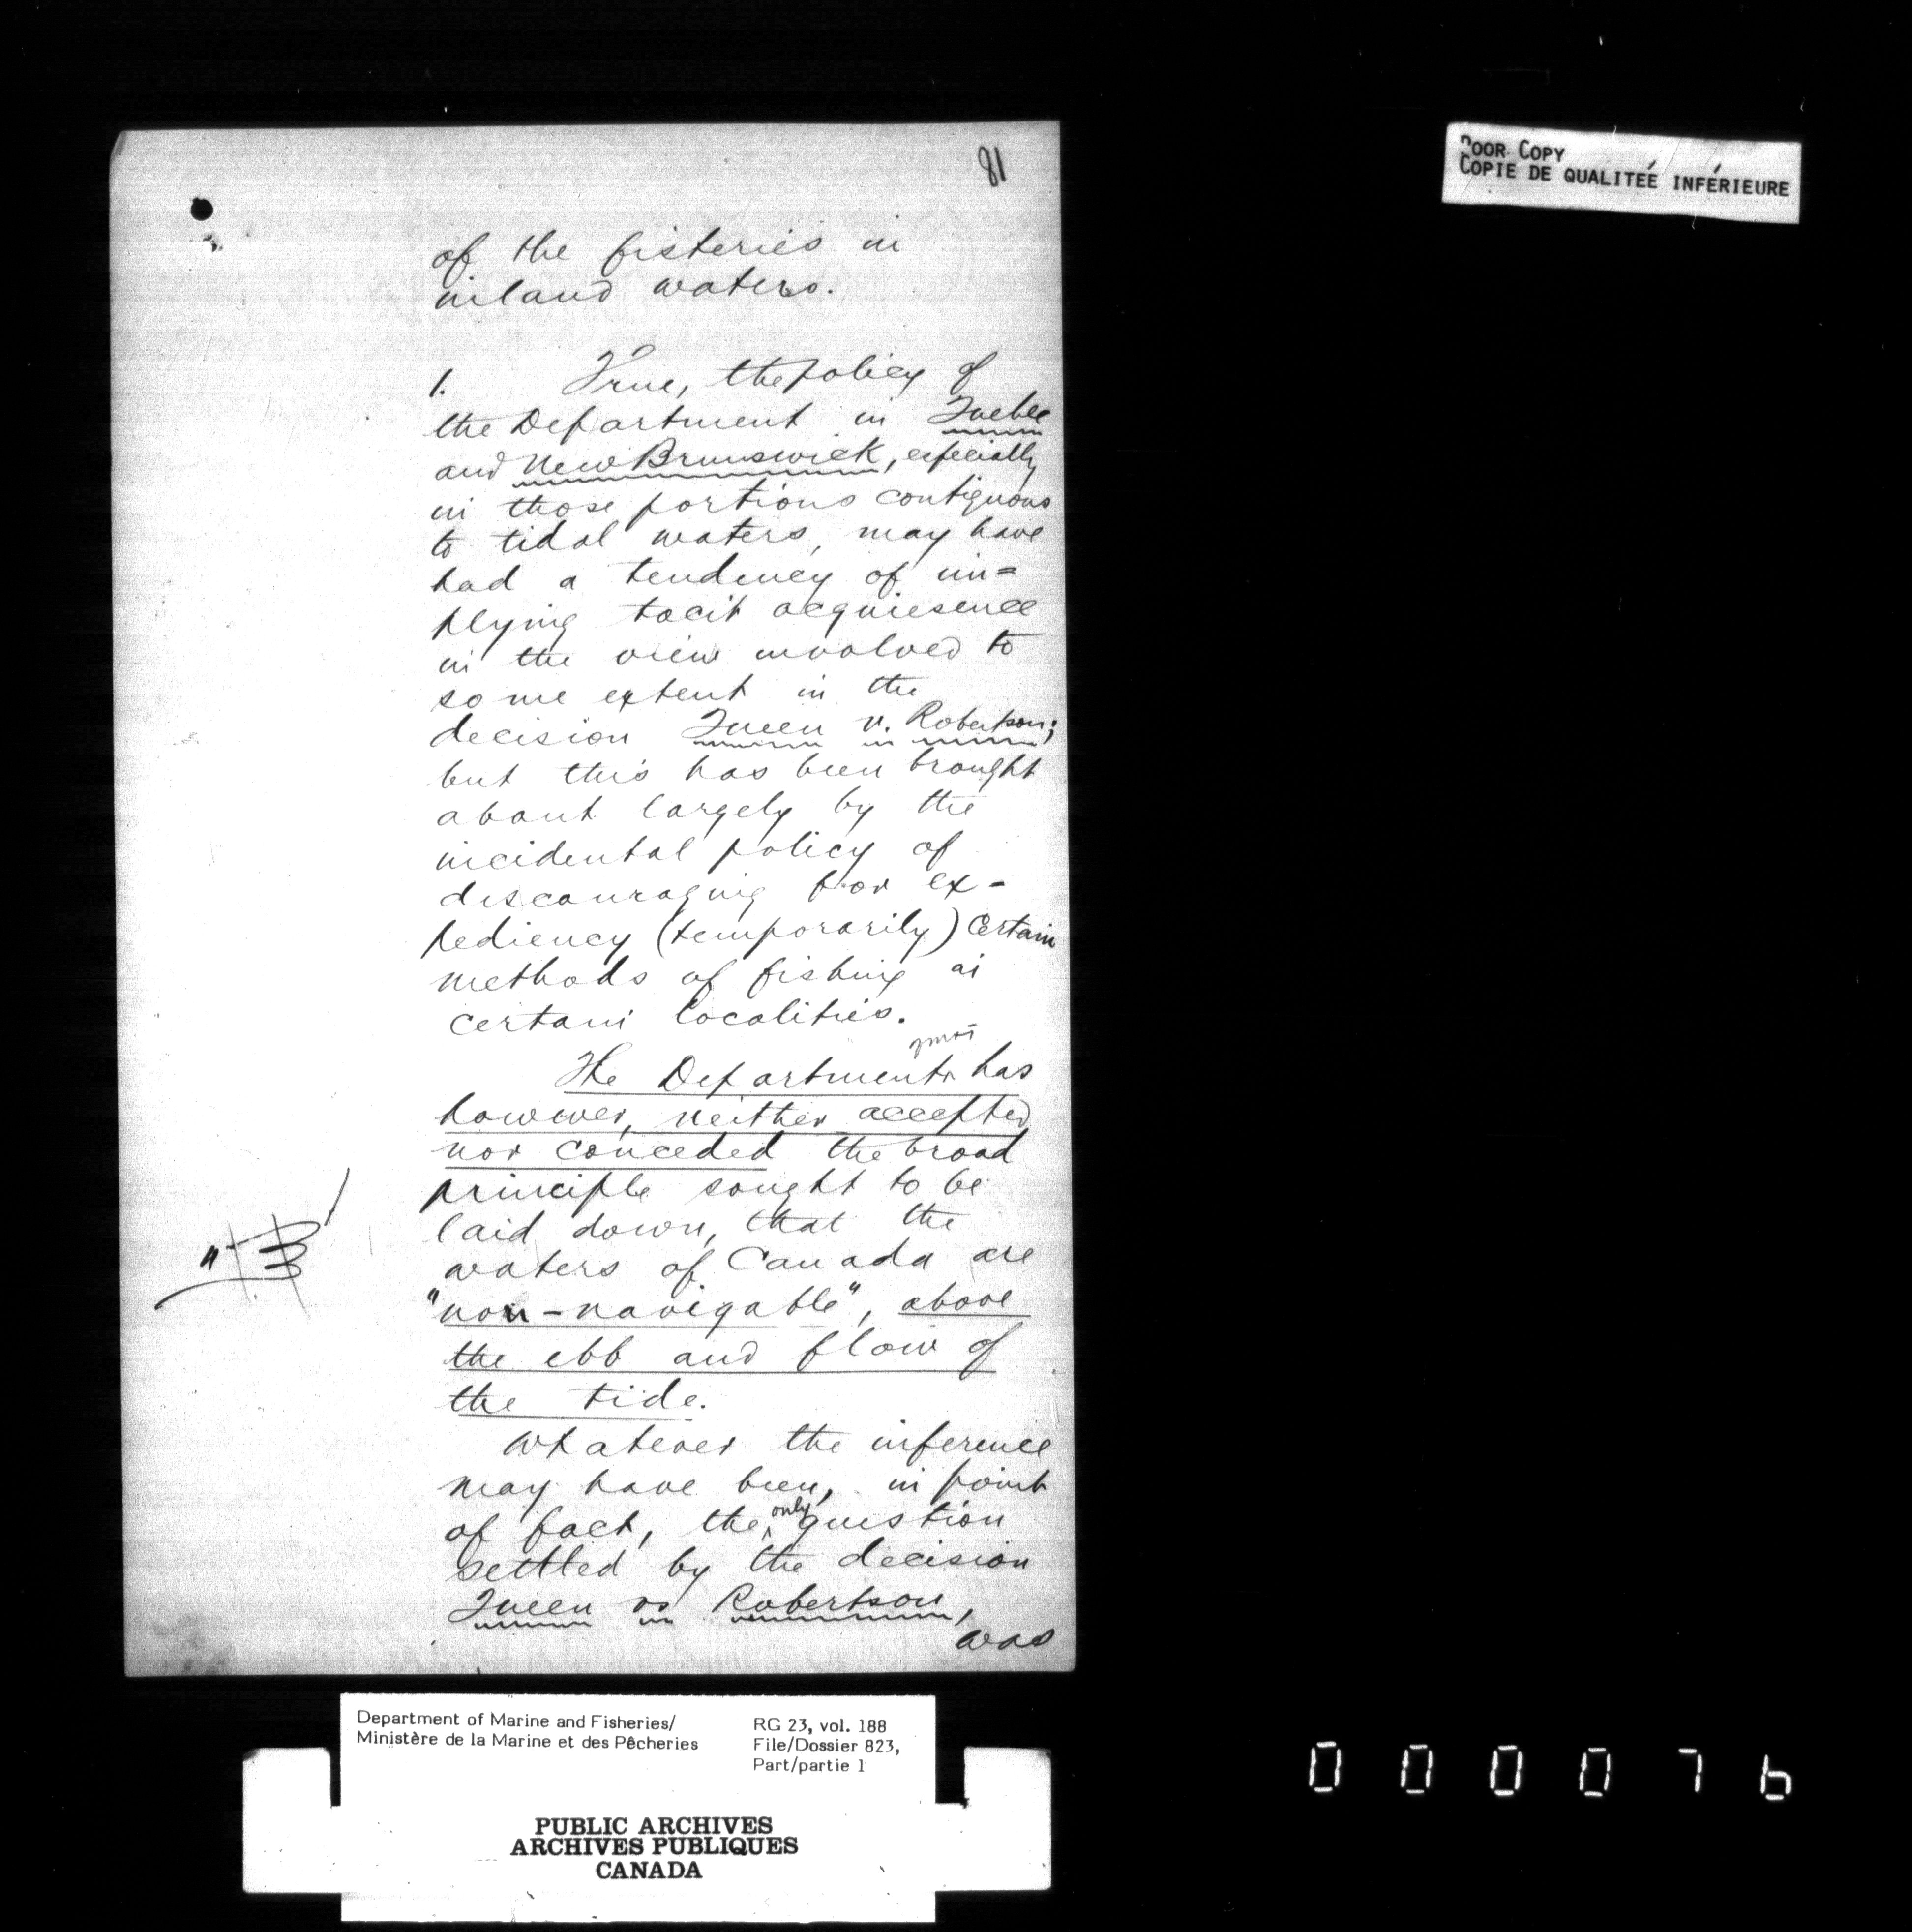 81
of the fisteries in
inland waters.
1. True, the policy of
the Department in Quebec
and New Brunswick, especially
in those portions contiguous
to tidal waters, may have
had a tendency of im=
plying tacit acquiesence
in the view involved to
some extent in the
decision Queen v. Robertson;
but this has been brought
about largely by the
incidental policy of
discouraging for ex-
pediency (temporarily) certain
methods of fishing in
certain localities.
The Department has
however, neither accepted
nor conceded the broad
principle sought to be
laid down, that the
waters of Canada are
"non-navigable", above
the ebb and flow of
the tide.
Whatever the inference
may have been, in point
of fact, the only question
settled by the decision
Queen vs Robertson,
was
POOR COPY
COPIE DE QUALITÉE INFÉRIEURE
Department of Marine and Fisheries/
Ministère de la Marine et des Pêcheries
RG 23, vol. 188
File/Dossier 823,
Part/partie 1
PUBLIC ARCHIVES
ARCHIVES PUBLIQUES
CANADA
000076